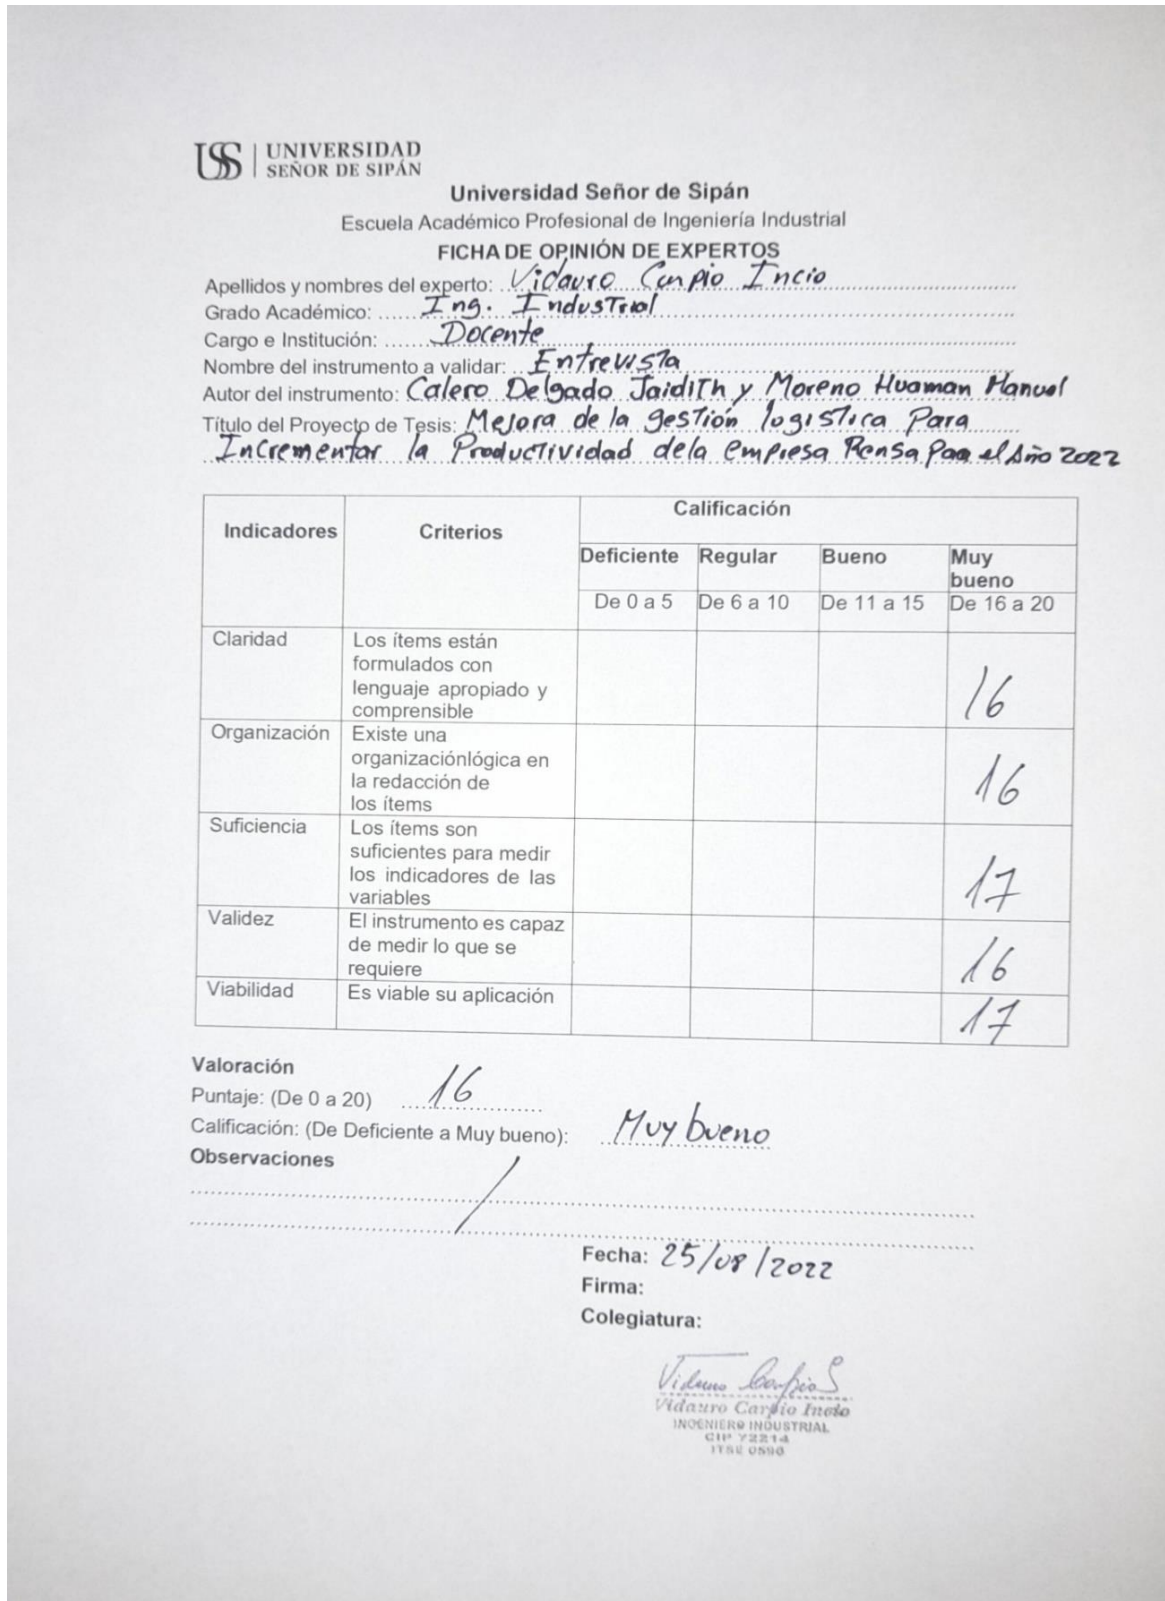 USS UNIVERSIDAD
SEÑOR DE SIPÁN
Universidad Señor de Sipán
Escuela Académico Profesional de Ingeniería Industrial
FICHA DE OPINIÓN DE EXPERTOS
Apellidos y nombres del experto: Vidauro Carpio Incio
Grado Académico: Ing. Industrial
Cargo e Institución: Docente
Nombre del instrumento a validar: Entrevista
Autor del instrumento: Calero Delgado Jaidith y Moreno Huaman Manuel
Título del Proyecto de Tesis: Mejora de la gestión logistica Para
Incrementar la Productividad dela empresa Rensa para el Año 2022
Calificación
Indicadores Criterios
Deficiente Regular Bueno Muy
bueno
De 0 a 5 De 6 a 10 De 11 a 15 De 16 a 20
Claridad Los ítems están
formulados con
lenguaje apropiado y
comprensible 16
Organización Existe una
organizaciónlógica en
la redacción de
los ítems 16
Suficiencia Los ítems son
suficientes para medir
los indicadores de las
variables 17
Validez El instrumento es capaz
de medir lo que se
requiere 16
Viabilidad Es viable su aplicación 17
Valoración
Puntaje: (De 0 a 20) 16
Calificación: (De Deficiente a Muy bueno): Muy bueno
Observaciones
Fecha: 25/08/2022
Firma:
Colegiatura:
Vidauro Carpio
Vidauro Carpio Incio
INGENIERO INDUSTRIAL
CIP 72214
ITSE 0590